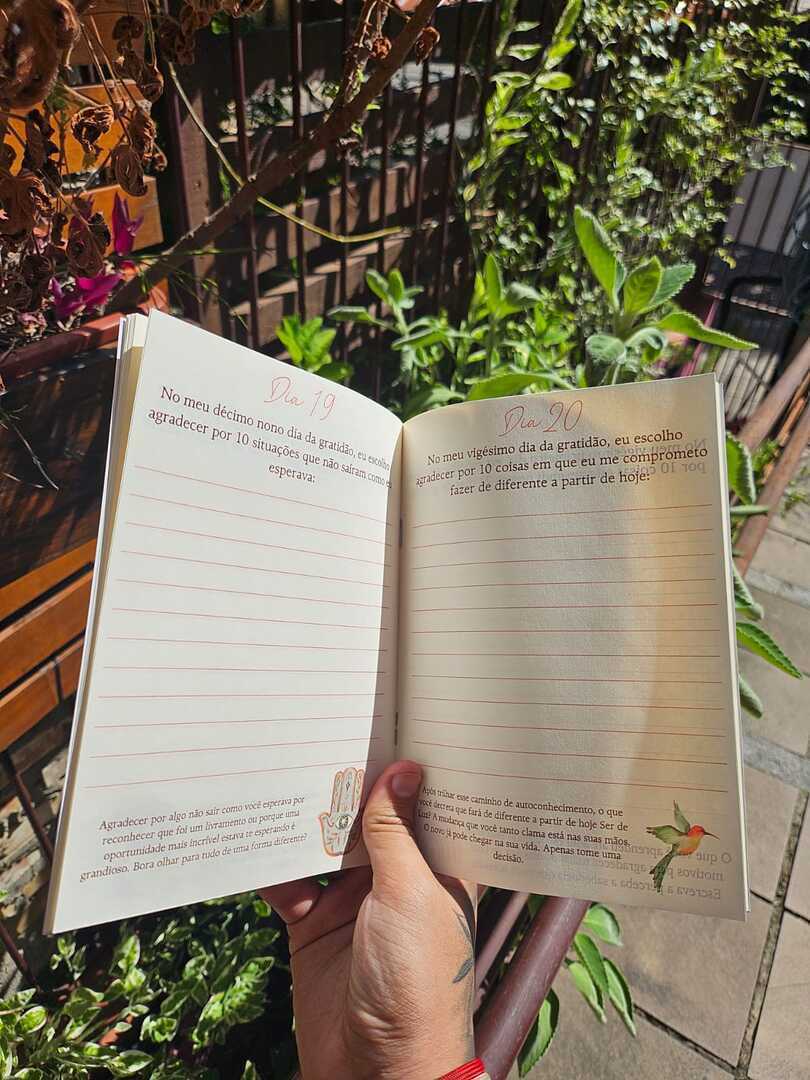 Dia 19
No meu décimo nono dia da gratidão, eu escolho
agradecer por 10 situações que não saíram como eu
esperava:
Agradecer por algo não sair como você esperava por
reconhecer que foi um livramento ou porque uma
oportunidade mais incrível estava te esperando é
grandioso. Bora olhar para tudo de uma forma diferente?
Dia 20
No meu vigésimo dia da gratidão, eu escolho
agradecer por 10 coisas em que eu me comprometo
fazer de diferente a partir de hoje:
Após trilhar esse caminho de autoconhecimento, o que
você decreta que fará de diferente a partir de hoje Ser de
Luz? A mudança que você tanto clama está nas suas mãos.
O novo já pode chegar na sua vida. Apenas tome uma
decisão.